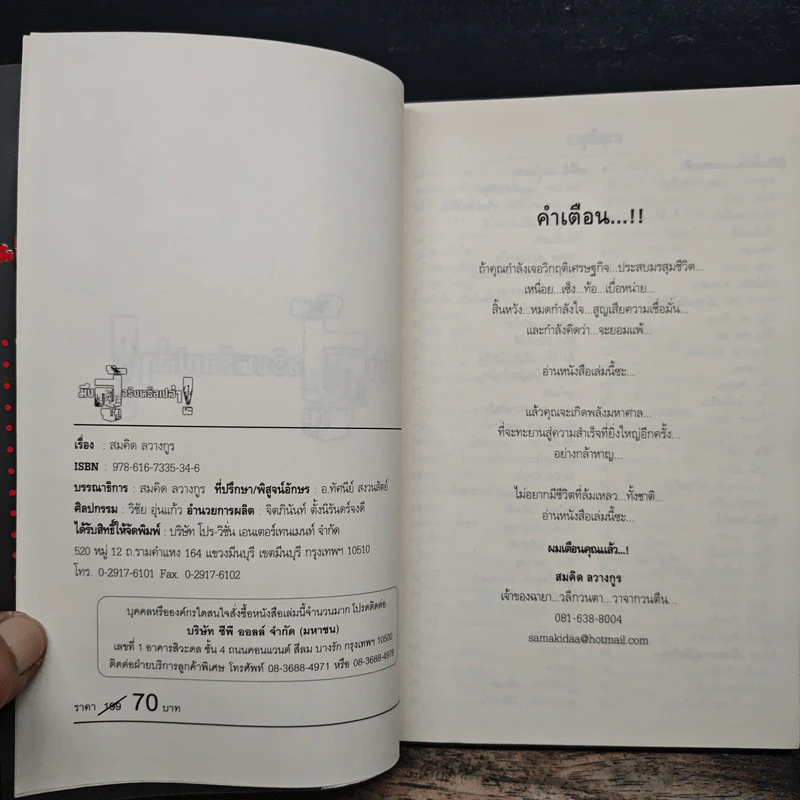 มึง จริงหรือเปล่า!
เรื่อง : สมคิด ลวางกูร
ISBN : 978-616-7335-34-6
บรรณาธิการ : สมคิด ลวางกูร ที่ปรึกษา/พิสูจน์อักษร : อ.ทัศนีย์ สงวนสัตย์
ศิลปกรรม : วิชัย อุ่นแก้ว อำนวยการผลิต : จิตภินันท์ ตั้งนิรันดร์จงดี
ได้รับสิทธิ์ให้จัดพิมพ์ : บริษัท โปร-วิชั่น เอนเตอร์เทนเมนท์ จำกัด
520 หมู่ 12 ถ.รามคำแหง 164 แขวงมีนบุรี เขตมีนบุรี กรุงเทพฯ 10510
โทร. 0-2917-6101 Fax. 0-2917-6102
บุคคลหรือองค์กรใดสนใจสั่งซื้อหนังสือเล่มนี้จำนวนมาก โปรดติดต่อ
บริษัท ซีพี ออลล์ จำกัด (มหาชน)
เลขที่ 1 อาคารสิวะดล ชั้น 4 ถนนคอนแวนต์ สีลม บางรัก กรุงเทพฯ 10500
ติดต่อฝ่ายบริการลูกค้าพิเศษ โทรศัพท์ 08-3688-4971 หรือ 08-3688-4978
ราคา 199 70 บาท
คำเตือน...!!
ถ้าคุณกำลังเจอวิกฤติเศรษฐกิจ...ประสบมรสุมชีวิต...
เหนื่อย...เซ็ง...ท้อ...เบื่อหน่าย...
สิ้นหวัง...หมดกำลังใจ...สูญเสียความเชื่อมั่น...
และกำลังคิดว่า...จะยอมแพ้...
อ่านหนังสือเล่มนี้ซะ...
แล้วคุณจะเกิดพลังมหาศาล...
ที่จะทะยานสู่ความสำเร็จที่ยิ่งใหญ่อีกครั้ง...
อย่างกล้าหาญ...
ไม่อยากมีชีวิตที่ล้มเหลว...ทั้งชาติ...
อ่านหนังสือเล่มนี้ซะ...
ผมเตือนคุณแล้ว...!
สมคิด ลวางกูร
เจ้าของฉายา...วลีกวนตา...วาจากวนตีน...
081-638-8004
samakidaa@hotmail.com